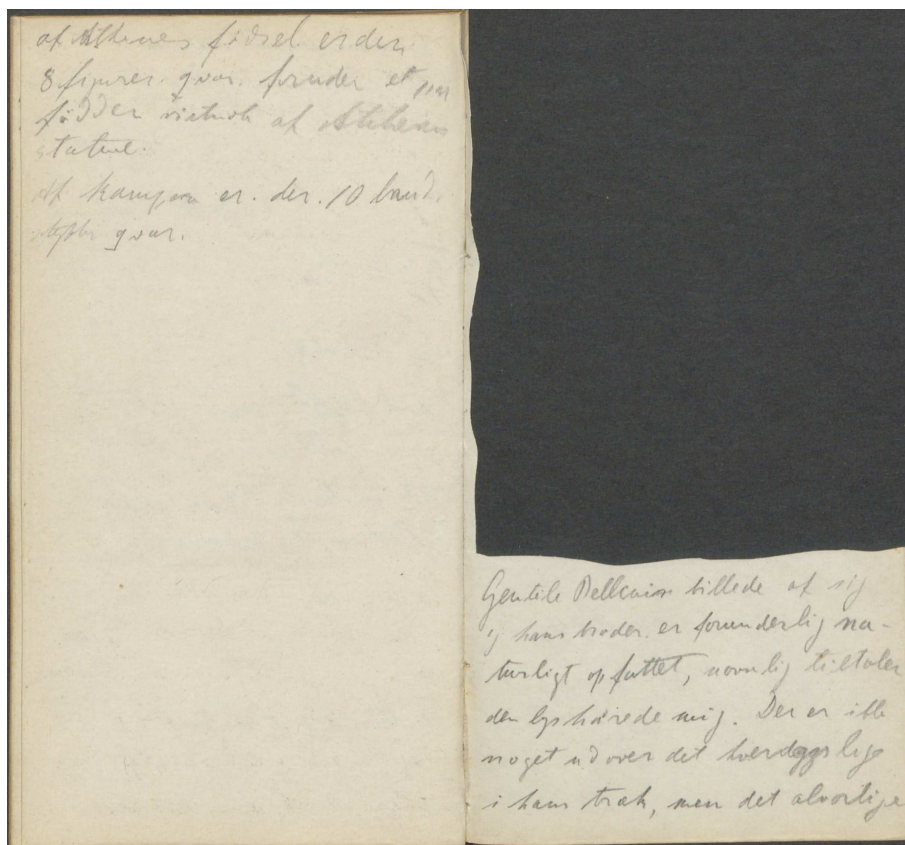 af Athenes fødsel er der
8 figurer qvar. foruden et par
fødder vistnok af Athenes
statue.
Af kampen er. der. 10 brud.
qvar.
Gentile Bellinis billede af sig
og hans broder. er forunderlig na-
turligt opfattet, navnlig tiltaler
den lyshårede mig. Der er ikke
noget udover det hverdagslige
i hans træk, men det alvorlige